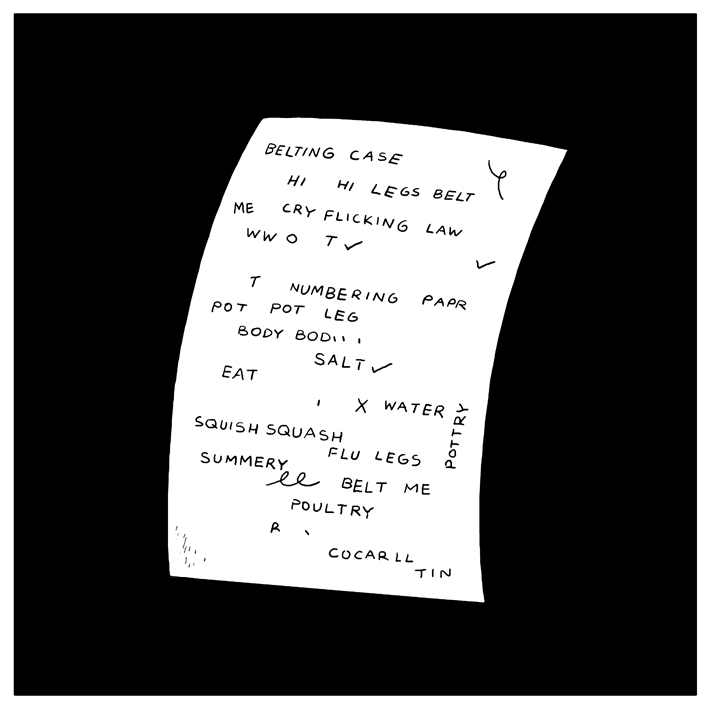 BELTING CASE
HI HI LEGS BELT
ME CRY FLICKING LAW
WW O T ✓
✓
T NUMBERING PAPR
POT POT LEG
BODY BODIII
SALT ✓
EAT
X WATER
POTTRY
SQUISH SQUASH
FLU LEGS
SUMMERY
BELT ME
POULTRY
R
COCARLL
TIN